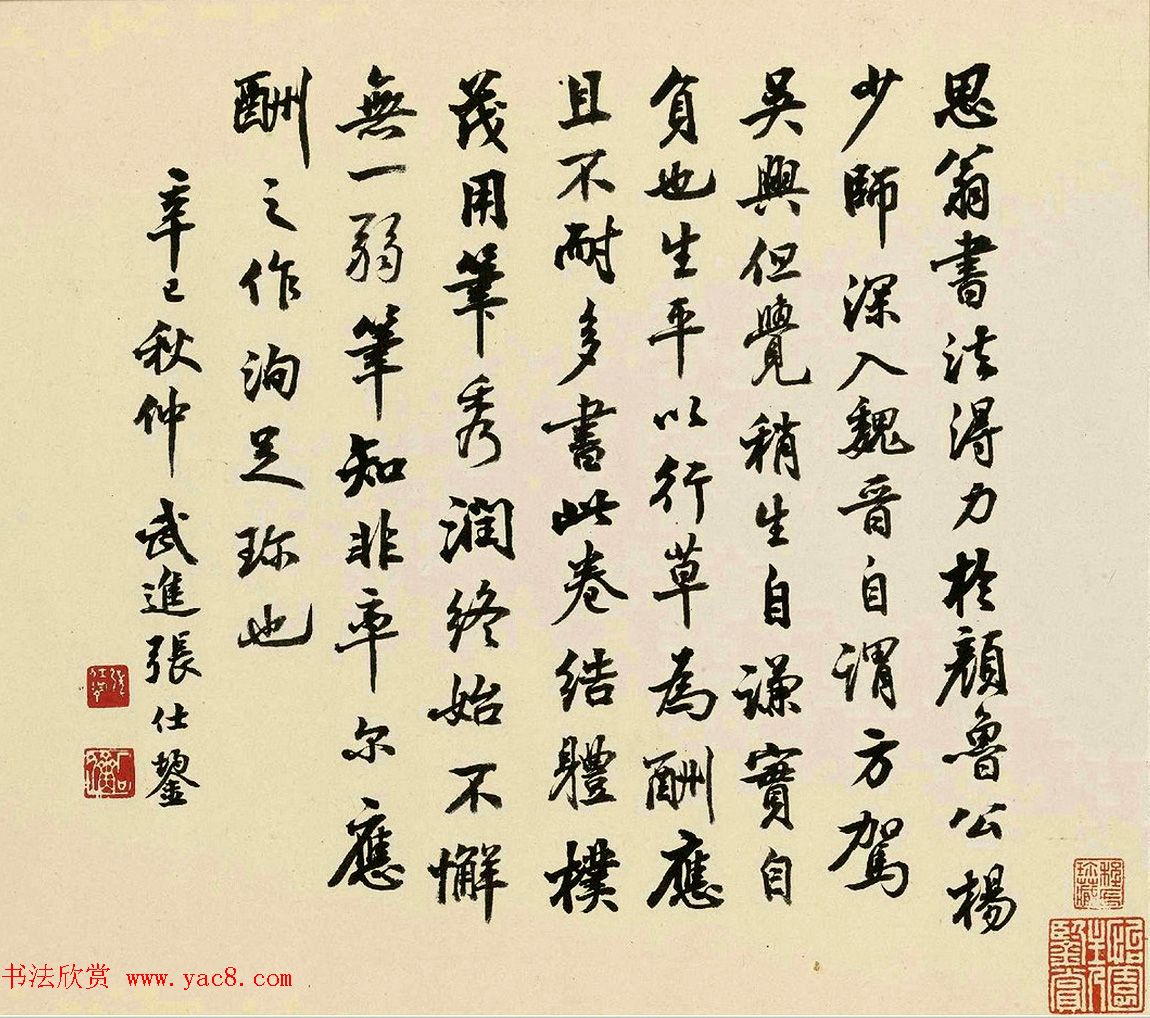 思翁書法得力於顏魯公楊
少師深入魏晉自謂方駕
吳興但覺稍生自謙實自
負也生平以行草為酬應
且不耐多書此卷結體樸
茂用筆秀潤終始不懈
無一弱筆知非率尔應
酬之作洵足珎也
辛巳秋仲武進張仕鋆
书法欣赏 www.yac8.com